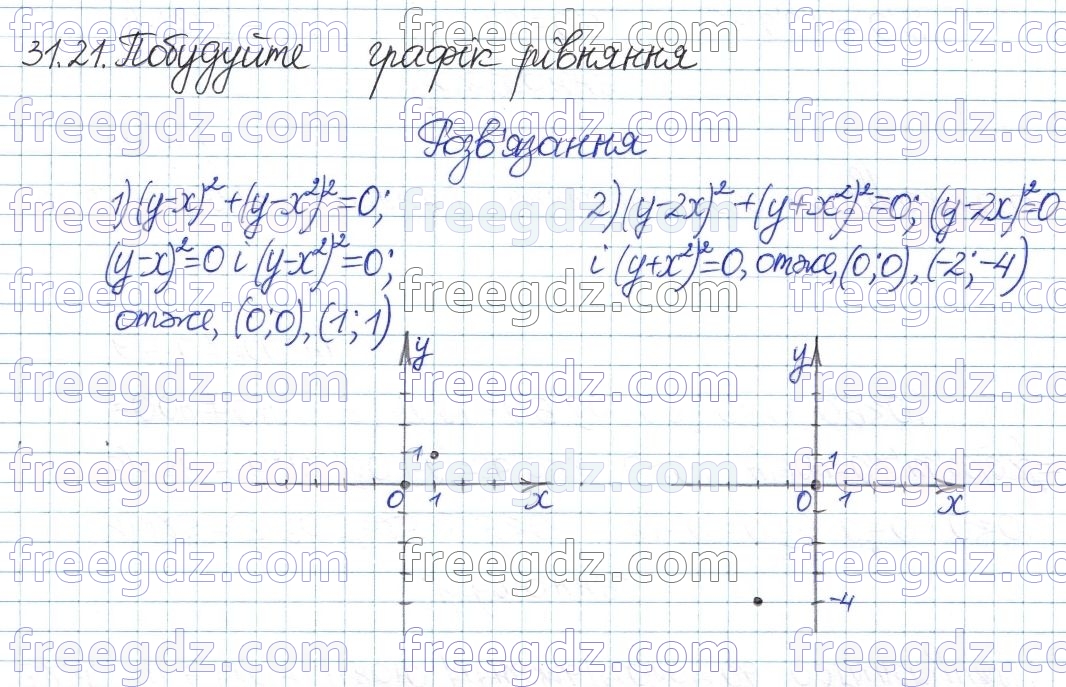 31.21. Побудуйте графік рівняння
Розв'язання
1) (y-x)²+(y-x²)²=0;
(y-x)²=0 і (y-x²)²=0;
отже, (0;0), (1;1)
2) (y-2x)²+(y+x²)²=0; (y-2x)²=0
і (y+x²)²=0, отже, (0;0), (-2;-4)
y
1
0 1 x
y
1
0 1 x
-4
freegdz.com freegdz.com freegdz.com
freegdz.com freegdz.com freegdz.com
freegdz.com freegdz.com freegdz.com
freegdz.com freegdz.com freegdz.com
freegdz.com freegdz.com freegdz.com
freegdz.com freegdz.com freegdz.com
freegdz.com freegdz.com freegdz.com
freegdz.com freegdz.com freegdz.com